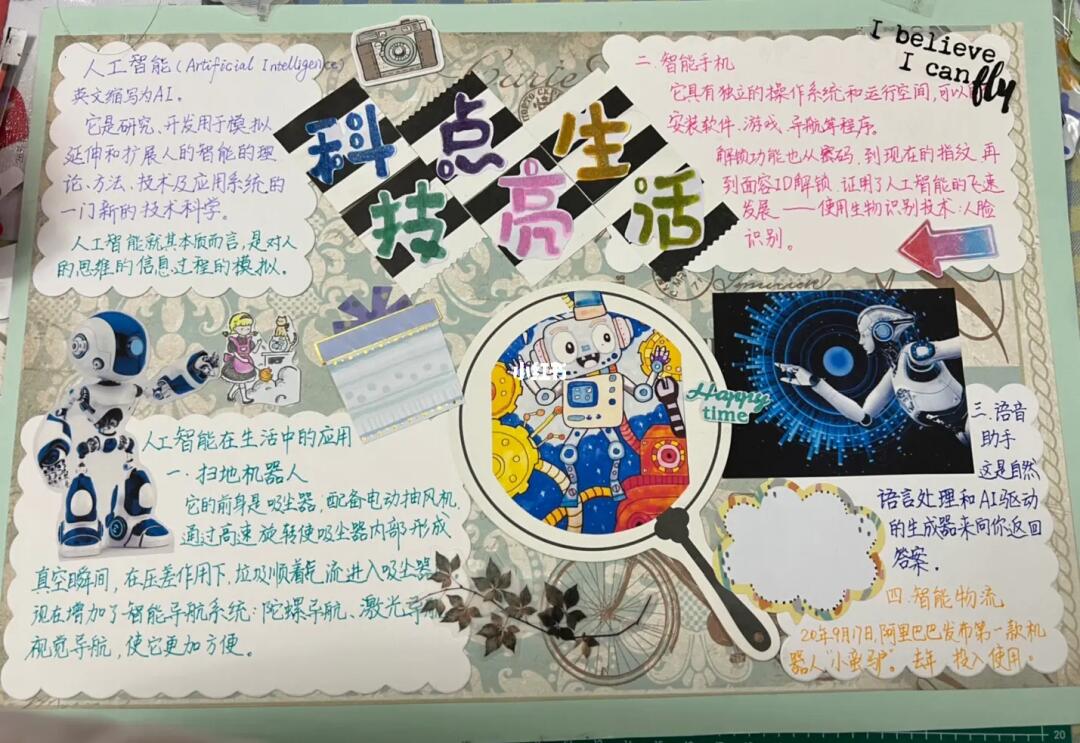 人工智能(Artificial Intelligence)
英文缩写为AI。
它是研究、开发用于模拟
延伸和扩展人的智能的理
论、方法、技术及应用系统的
一门新的技术科学。
人工智能就其本质而言,是对人
的思维的信息过程的模拟。
科技点亮生活
I believe
I can fly
二.智能手机
它具有独立的操作系统和运行空间,可以
安装软件、游戏、导航等程序。
解锁功能也从密码,到现在的指纹,再
到面容ID解锁,证用了人工智能的飞速
发展——使用生物识别技术:人脸
识别。
人工智能在生活中的应用
一.扫地机器人
它的前身是吸尘器,配备电动抽风机,
通过高速旋转使吸尘器内部形成
真空瞬间,在压差作用下,垃圾顺着气流进入吸尘器
现在增加了智能导航系统:陀螺导航、激光导
视觉导航,使它更加方便。
小红书
Happy
time
三.语音
助手
这是自然
语言处理和AI驱动
的生成器来向你返回
答案。
四.智能物流
20年9月17日,阿里巴巴发布第一款机
器人“小蛮驴”。去年 投入使用。
20